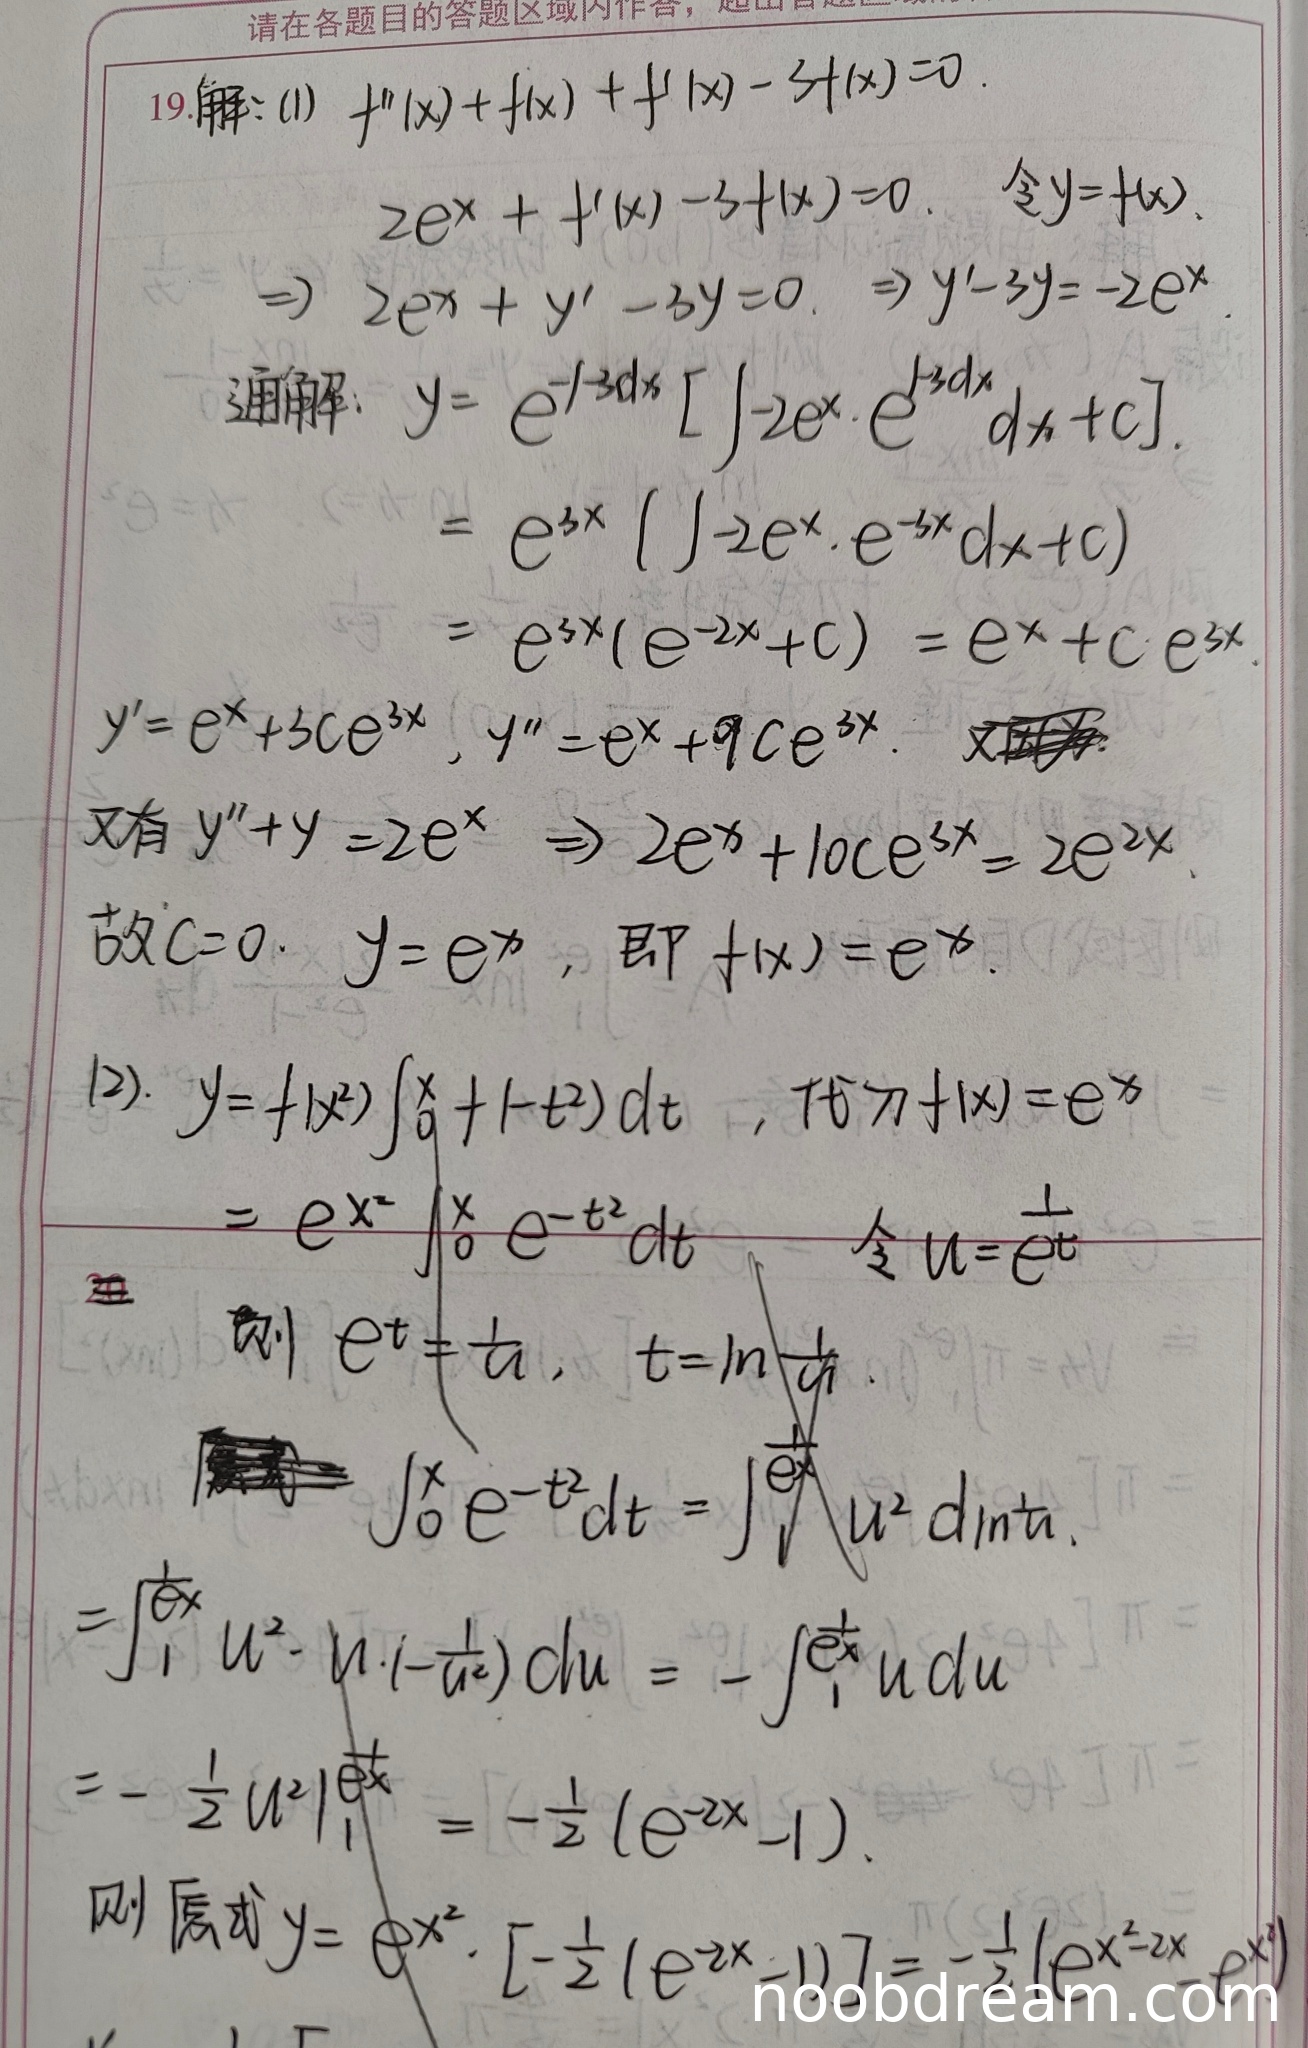 请在各题目的答题区域内作答，超出答题区域的
19.解:(1) f''(x)+f(x)+f'(x)-3f(x)=0.
2e^x+f'(x)-3f(x)=0. 令y=f(x).
⇒ 2e^x+y'-3y=0. ⇒ y'-3y=-2e^x.
通解: y=e^{-∫-3dx}[∫-2e^x·e^{∫-3dx}dx+C].
= e^{3x}(∫-2e^x·e^{-3x}dx+C)
= e^{3x}(e^{-2x}+C) = e^x+C·e^{3x}.
y'=e^x+3Ce^{3x}, y''=e^x+9Ce^{3x}. 又
又有 y''+y=2e^x ⇒ 2e^x+10Ce^{3x}=2e^{2x}.
故C=0. y=e^x, 即 f(x)=e^x.
(2). y=f(x²)∫_0^x f(-t²)dt, 代入f(x)=e^x
= e^{x²}∫_0^x e^{-t²}dt 令u=1/e^t
20
则 e^t=1/u, t=ln 1/u.
∫_0^x e^{-t²}dt = ∫_1^{1/e^x} u² dln 1/u.
=∫_1^{1/e^x} u²·u·(-1/u²)du = -∫_1^{1/e^x} u du
=-1/2 u²|_1^{1/e^x} = -1/2(e^{-2x}-1).
则原式y=e^{x²}·[-1/2(e^{-2x}-1)]=-1/2(e^{x²-2x}-e^{x²})
noobdream.com